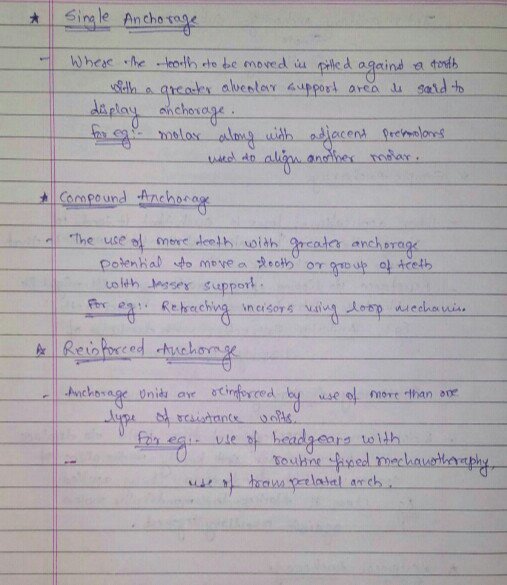 * Single Anchorage
- Where the tooth to be moved is pitted against a tooth
with a greater alveolar support area is said to
display anchorage.
for eg:- molar along with adjacent premolars
used to align another molar.
* Compound Anchorage
- The use of more teeth with greater anchorage
potential to move a tooth or group of teeth
with lesser support.
For eg:- Retracting incisors using loop mechanism.
* Reinforced Anchorage
- Anchorage Units are reinforced by use of more than one
type of resistance units.
For eg:- use of headgears with
- routine fixed mechanotheraphy,
use of trans pelatal arch.